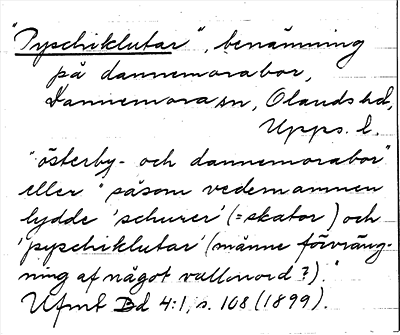 "Pyschiklutar", benämning
på dannemorabor,
Dannemora sn, Olands hd,
Upps. l.
"österby- och dannemorabor"
eller "såsom vedernamnen
lydde 'schurer' (= skator) och
'pyschiklutar' (månne förvräng-
ning af något vallonord?)."
Ufmt Bd 4:1, s. 108 (1899).